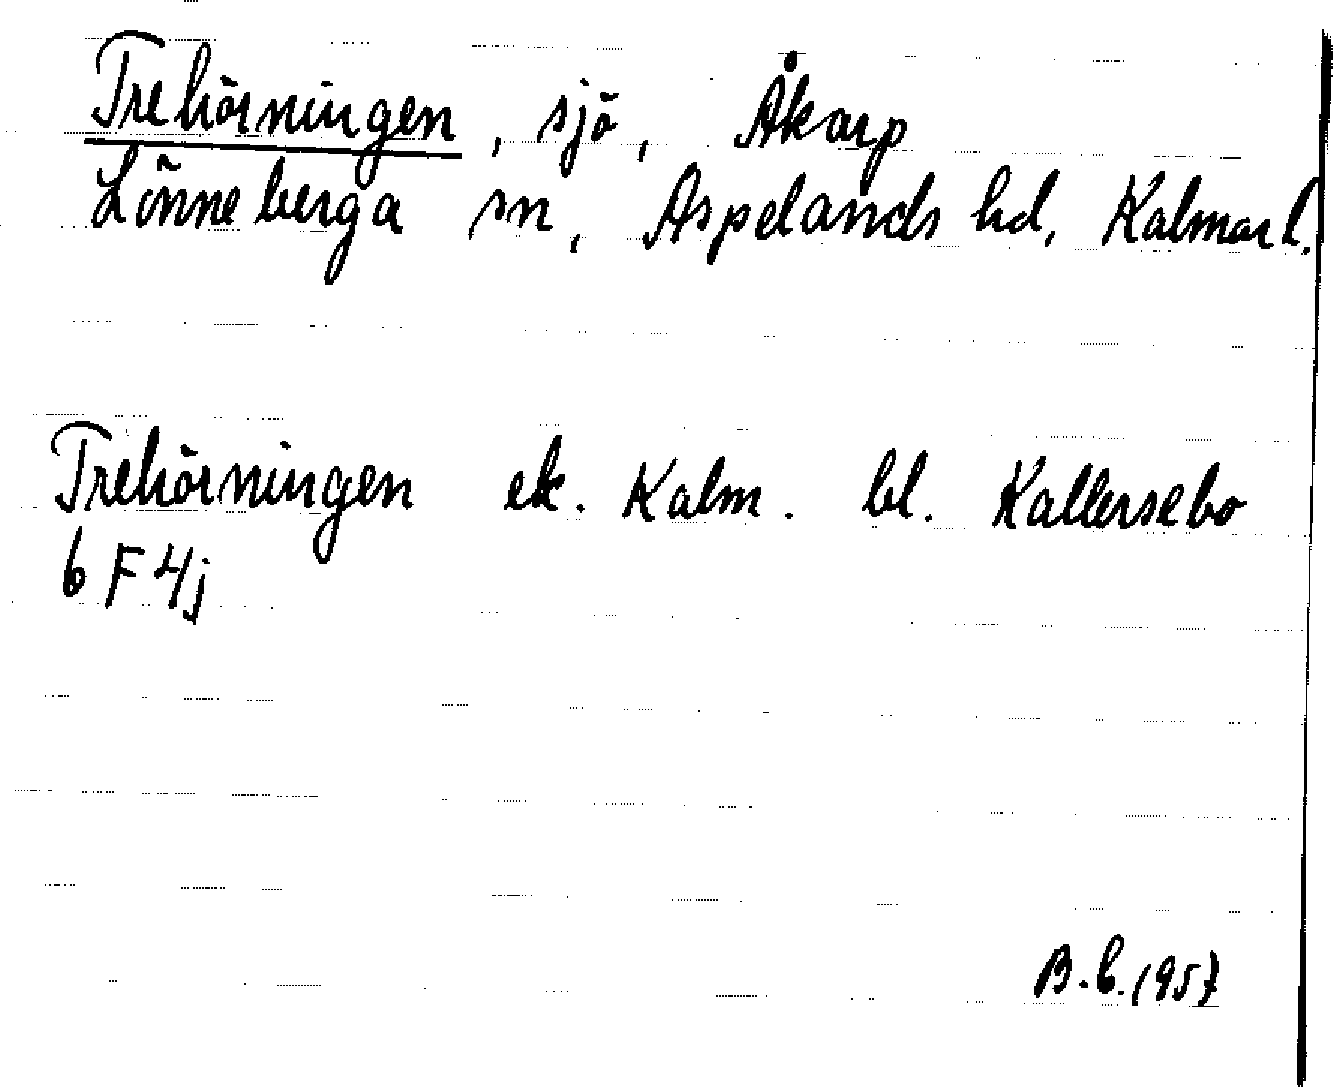 Trehörningen, sjö, Åkarp
Lönneberga sn, Aspelands hd, Kalmar l.
Trehörningen ek. Kalm. bl. Kallersebo
6 F 4j
B.C. 1957